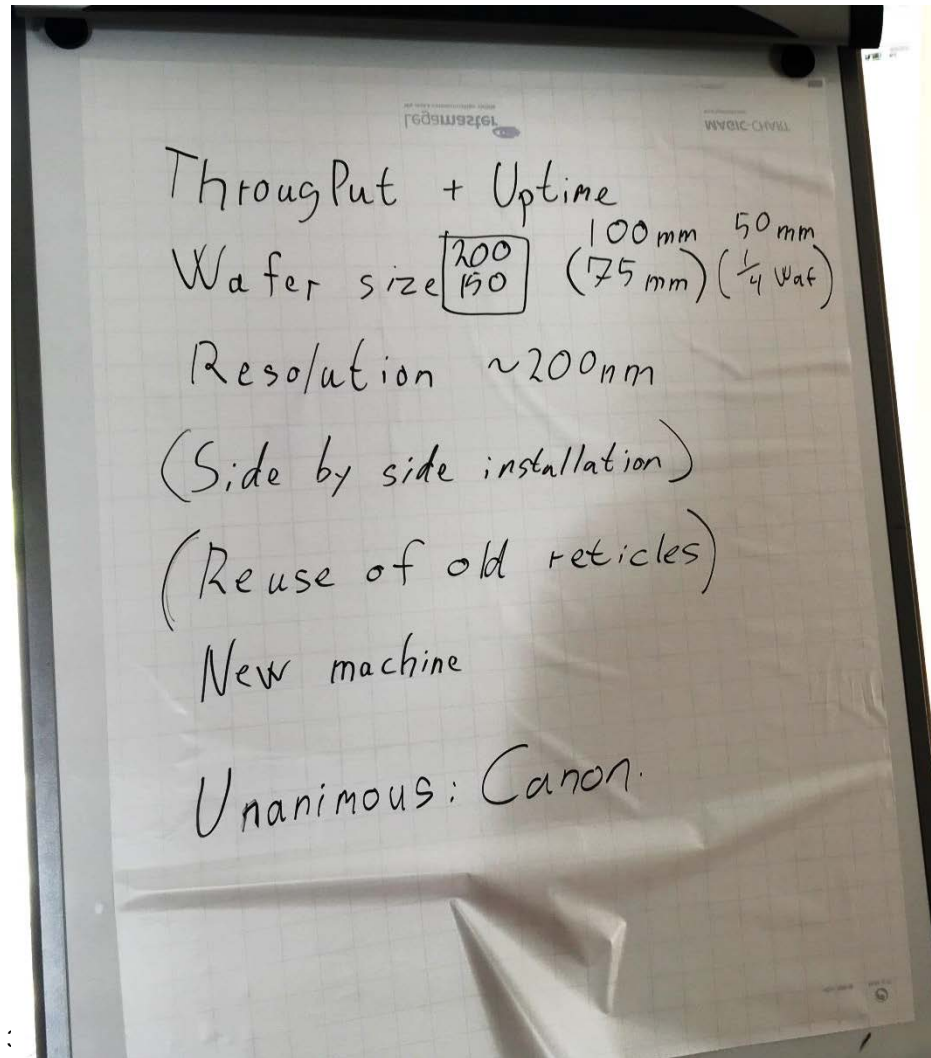 Legamaster
MAGIC-CHART
ThrougPut + Uptime
100 mm 50 mm
Wafer size 200 (75 mm) (1/4 Waf)
150
Resolution ~200nm
(Side by side installation)
(Reuse of old reticles)
New machine
Unanimous: Canon.